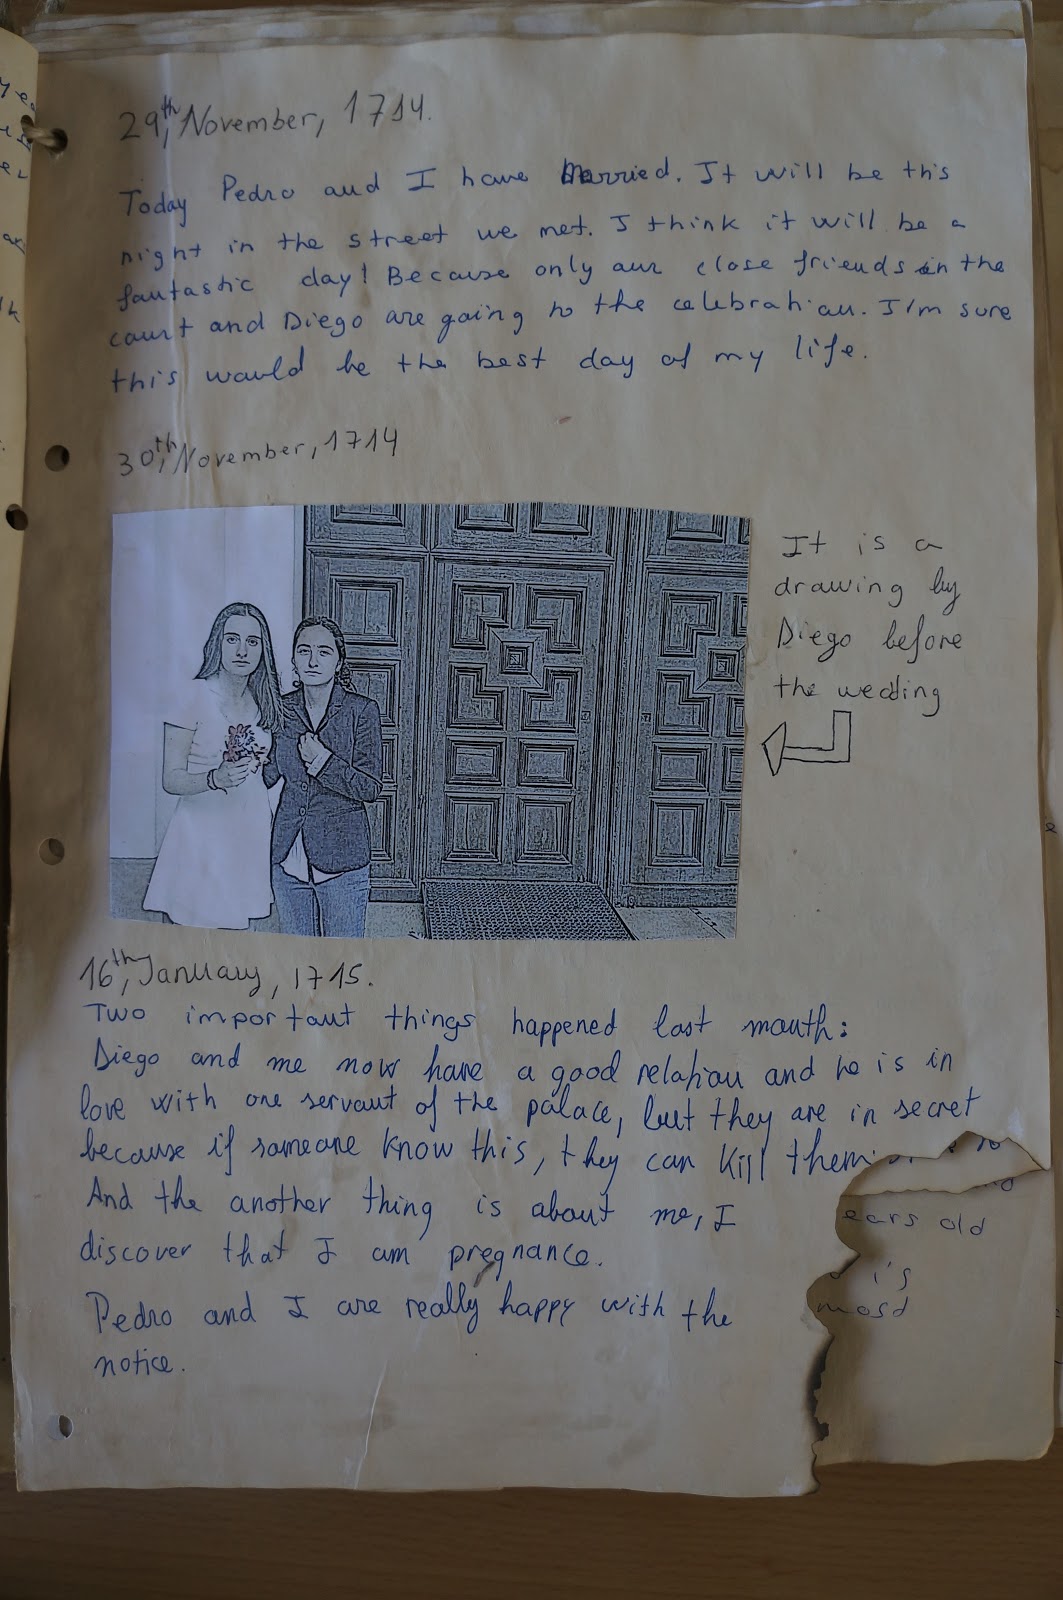 29th, November, 1714.
Today Pedro and I have Married. It will be this
night in the street we met. I think it will be a
fantastic day! Because only our close friends in the
court and Diego are going to the celebration. I'm sure
this would be the best day of my life.
30th, November, 1714
It is a
drawing by
Diego before
the wedding
16th, January, 1715.
Two important things happened last month:
Diego and me now have a good relation and he is in
love with one servant of the palace, but they are in secret
because if someone know this, they can kill them
And the another thing is about me, I
discover that I am pregnance.
Pedro and I are really happy with the
notice.
ears old
i's